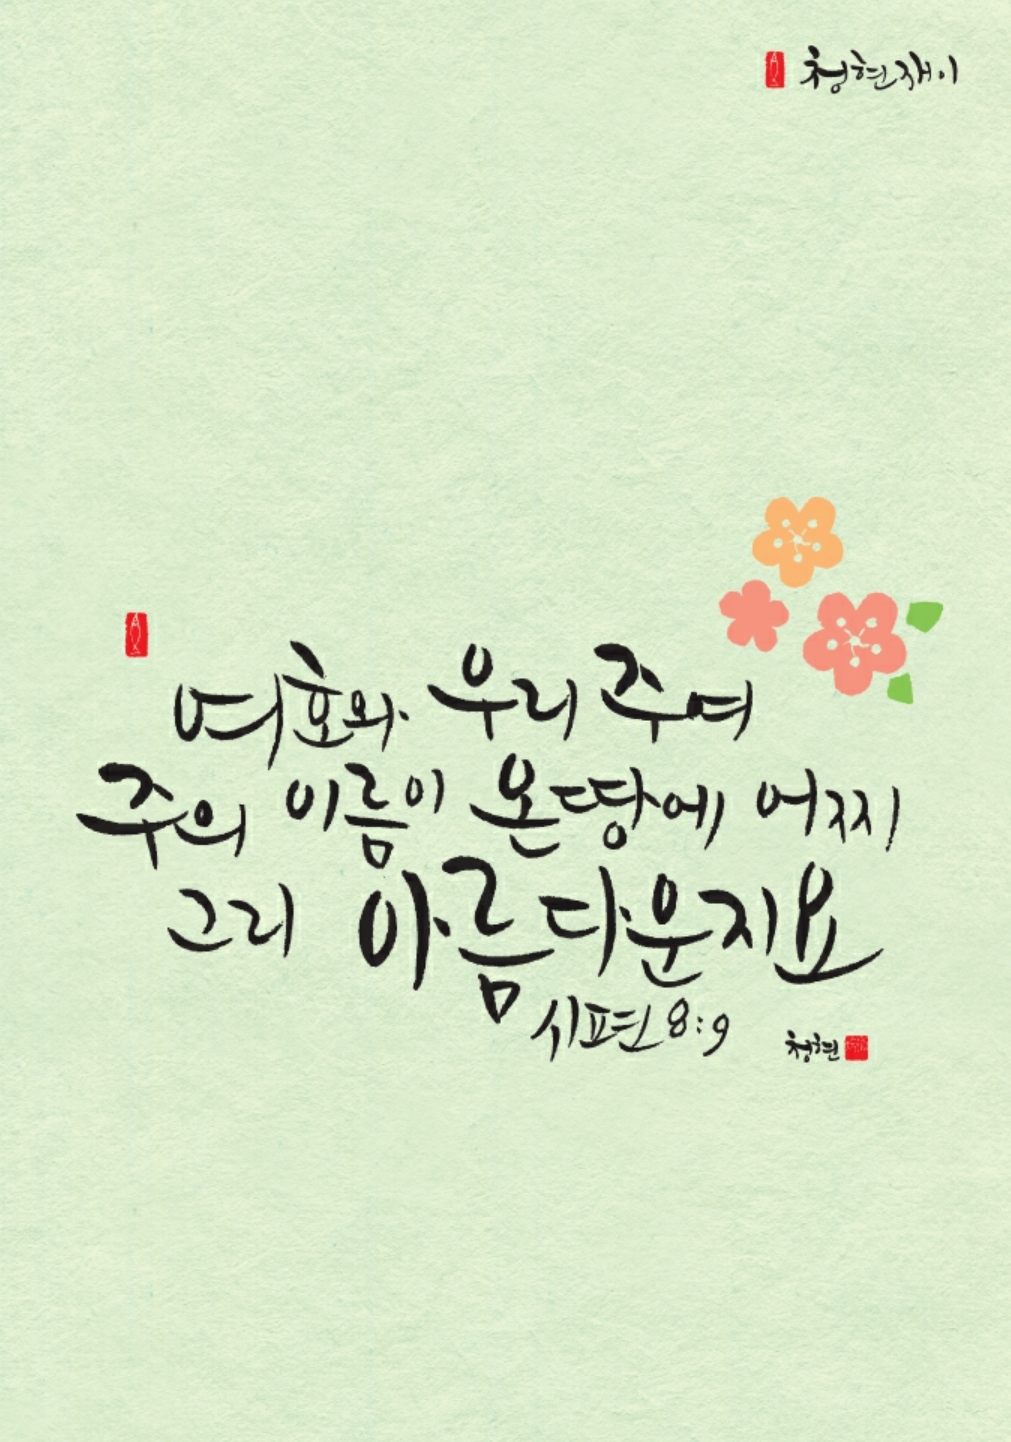 청현재이
여호와 우리 주여
주의 이름이 온 땅에 어찌
그리 아름다운지요
시편 8:9
청현